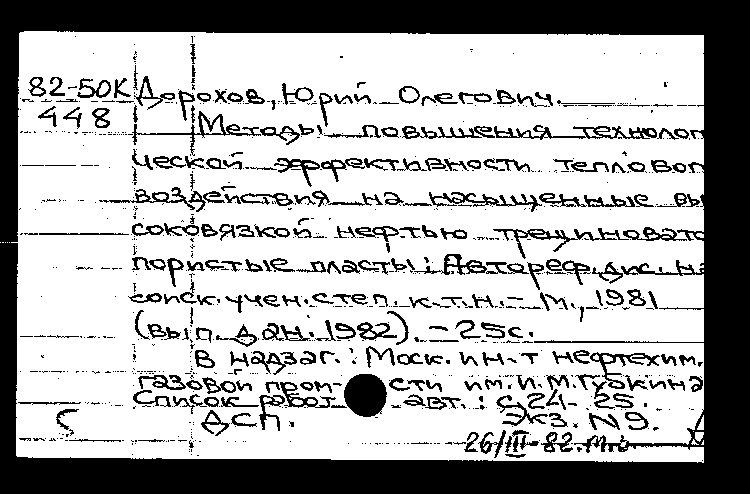 82-50К Дорохов, Юрий Олегович.
448 Методы повышения технолог
ческой эффективности теплового
воздействия на насыщенные вы
соковязкой нефтью трещиновато
пористые пласты: Автореф. дис. на
соиск. учен. степ. к.т.н. - М., 1981
(вып. дан. 1982). - 25с.
В надзаг.: Моск. ин-т нефтехим.
газовой пром-сти им. И.М. Губкина
Список работ авт.: с. 24-25.
ДСП. Экз. N9.
26/III-82.